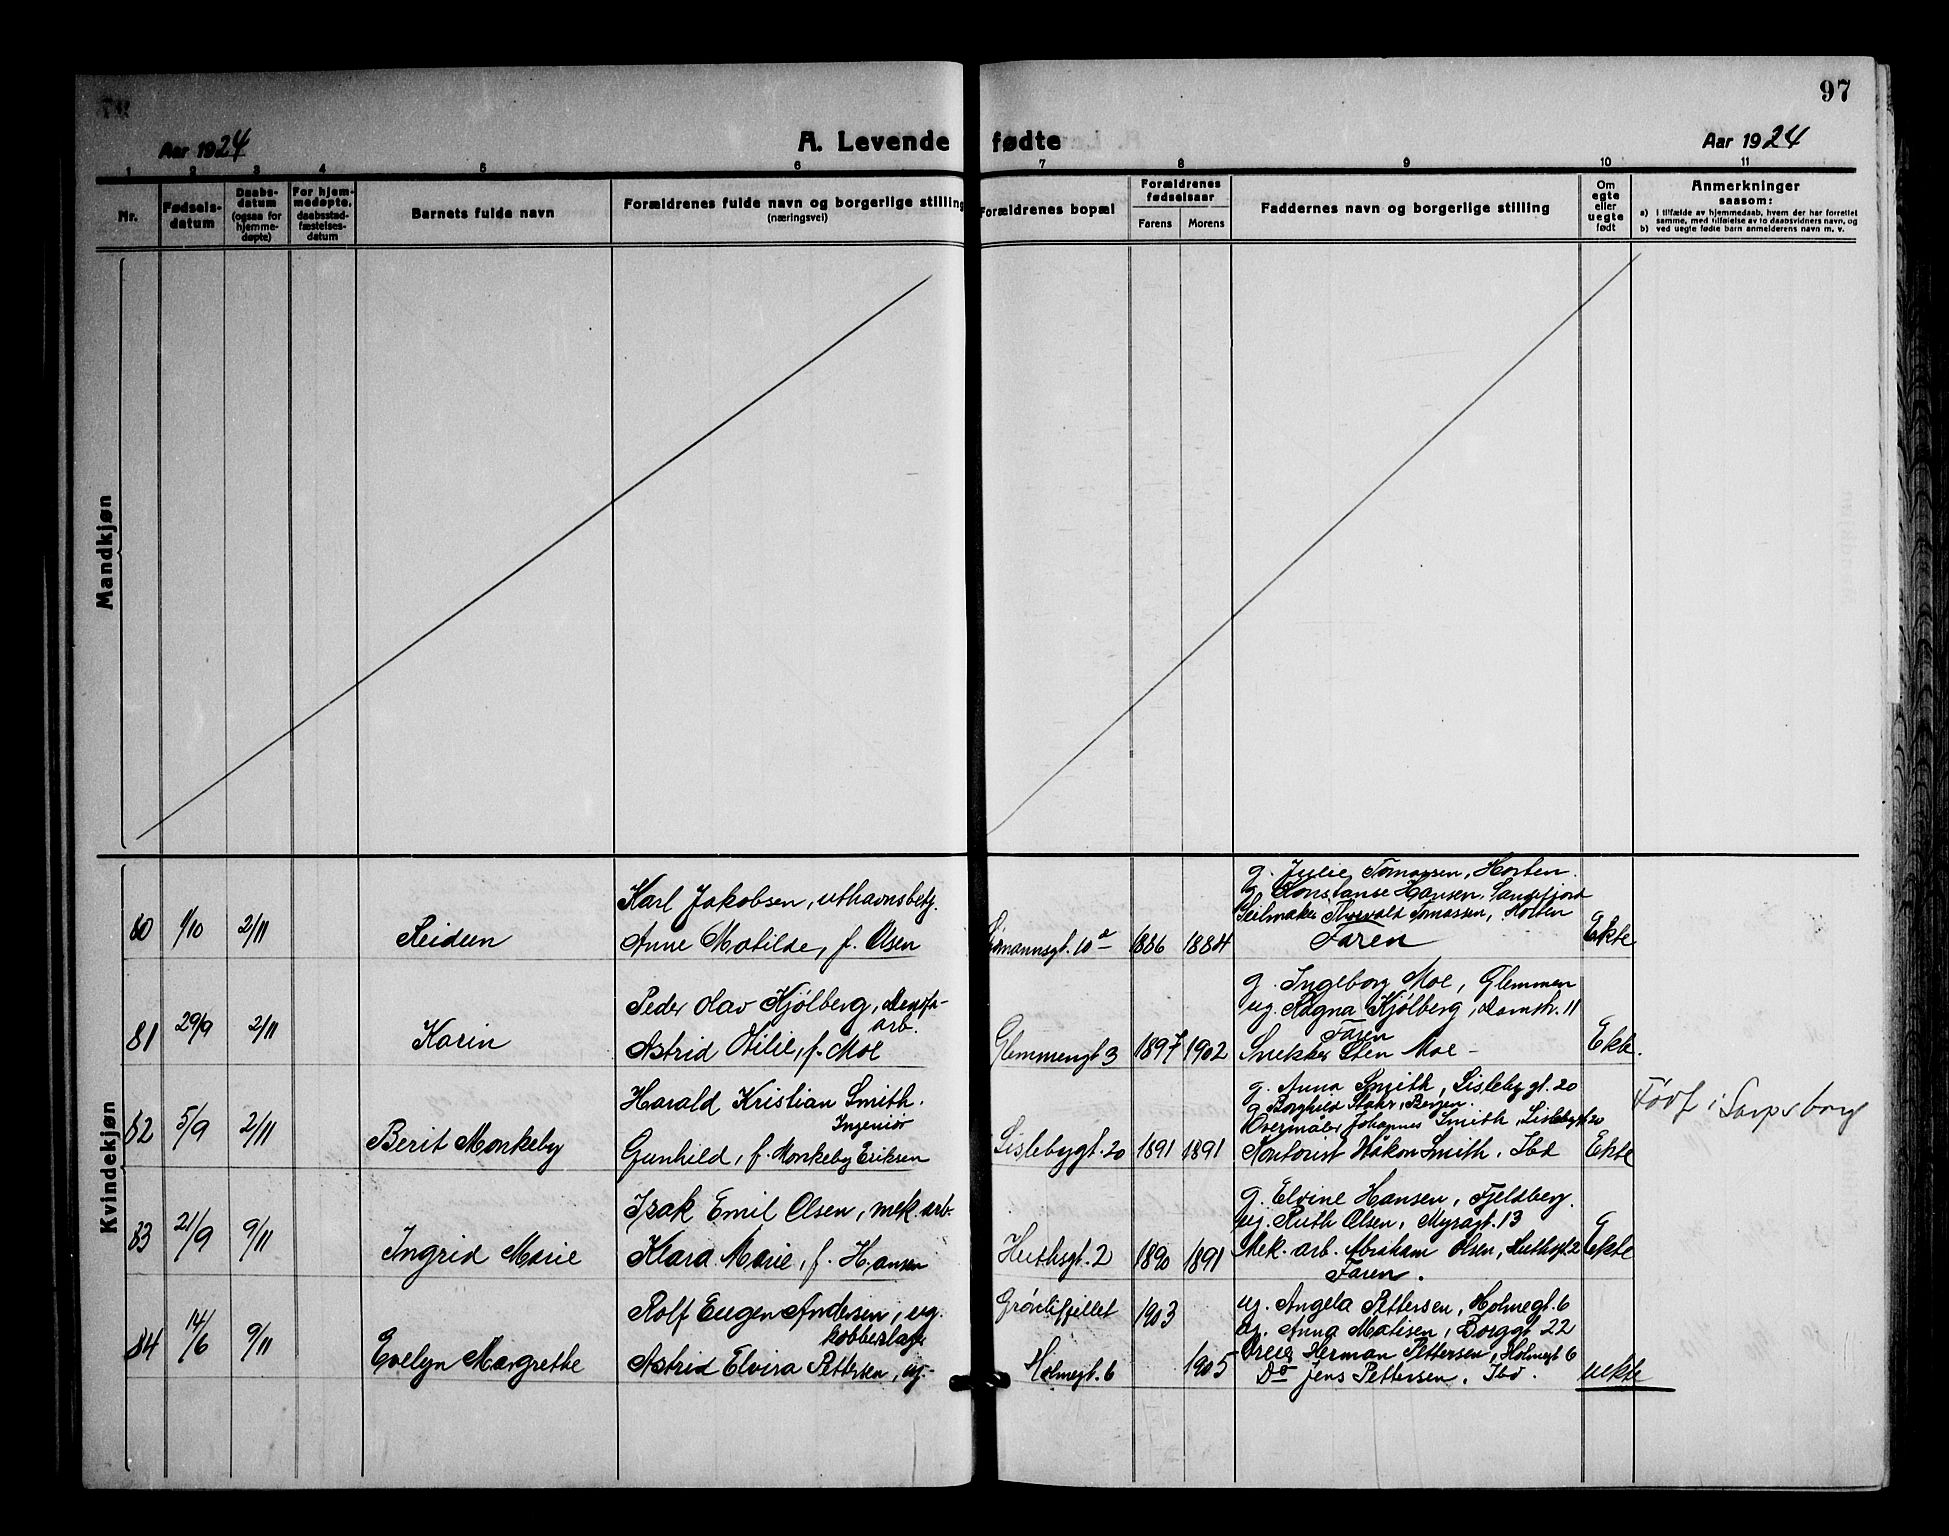 97
Aar 1924
A. Levende fødte
Aar 1924
1 2 3 4 5 6 7 8 9 10 11
Nr.
Fødselsdatum
Daabsdatum
(ogsaa for
hjemmedøpte)
For hjemmedøpte,
daabsstadfæstelsesdatum
Barnets fulde navn
Forældrenes fulde navn og borgerlige stilling
(næringsvei)
Forældrenes bopæl
Forældrenes
fødselsaar
Farens Morens
Faddernes navn og borgerlige stilling
Om
egte
eller
uegte
født
Anmerkninger
saasom:
a) i tilfælde av hjemmedaab, hvem der har forrettet
samme, med tilføielse av to daabsvidners navn, og
b) ved uegte fødte barn anmelderens navn m. v.
Mandkjøn
Kvindekjøn
80 1/10 2/11
Reidun
Karl Jakobsen, uthavnsbetj.
Anne Matilde, f. Olsen
10a 1886 1884
g. Julie Tomassen, Horten.
g. Konstanse Hansen, Sandefjord
Seilmaker Thorvald Tomassen, Horten
Faren
Ekte
81 29/9 2/11
Karin
Peder Olav Kjølberg,
arb.
Astrid Otilie, f. Moe
Glemmengt 3 1897 1902
g. Ingeborg Moe, Glemmen
ug. Ragna Kjølberg, Damstr. 11
Faren
Snekker Sten Moe -
Ekte.
82 5/9 2/11
Berit Monkeby
Harald Kristian Smith.
Ingeniør
Gunhild, f. Monkeby Eriksen
Lislebygt. 20 1891 1891
g. Anna Smith, Lislebygt. 20
g. Borghild Stahr, Bergen.
Overmåler Johannes Smith, Lislebygt 20
Kontorist Håkon Smith. Ibd
Ekte
Født i Sarpsborg
83 21/9 9/11
Ingrid Marie
Isak Emil Olsen, mek. arb.
Klara Marie, f. Hansen
Huthsgt. 2 1890 1891
g. Elvine Hansen, Fjeldberg.
ug. Ruth Olsen, Myragt. 13
Mek. arb. Abraham Olsen, Huthsgt 2
Faren.
Ekte
84 14/6 9/11
Evelyn Margrethe
Rolf Eugen Andersen, ug.
kobberslag.
Astrid Elvira Pettersen, ug.
Grønlifjellet 1903
Holmegt. 6 1905
ug. Angela Pettersen, Holmegt. 6
ug. Anna Matisen, Borggt. 22
Herman Pettersen, Holmegt 6
Do Jens Pettersen. Ibd.
uekte